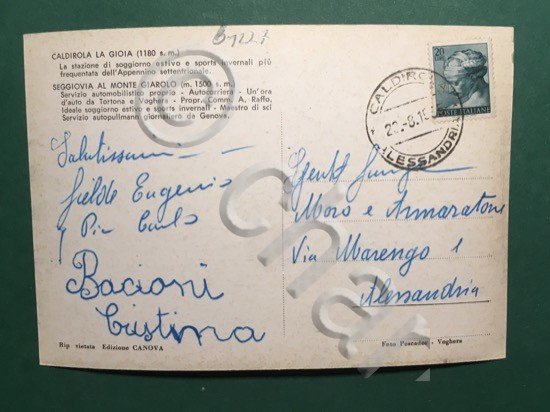 CALDIROLA LA GIOIA (1180 s. m.)
La stazione di soggiorno estivo e sports invernali più
frequentata dell'Appennino settentrionale.
SEGGIOVIA AL MONTE GIAROLO (m. 1500 s. m.)
Servizio automobilistico proprio - Autocorriera - Un'ora
d'auto da Tortona e Voghera - Propr. Comm. A. Raffo.
Ideale soggiorno estivo e sports invernali - Maestro di sci
Servizio autopullmann giornaliero da Genova.
Salutissimi
Eugenio
Pier Carlo
Bacioni
Cristina
Rip. vietata Edizione CANOVA
20
POSTE ITALIANE
ALESSANDRIA
Moro e Ammaratone
Via Marengo 1
Alessandria
Foto Pescatore - Voghera
©